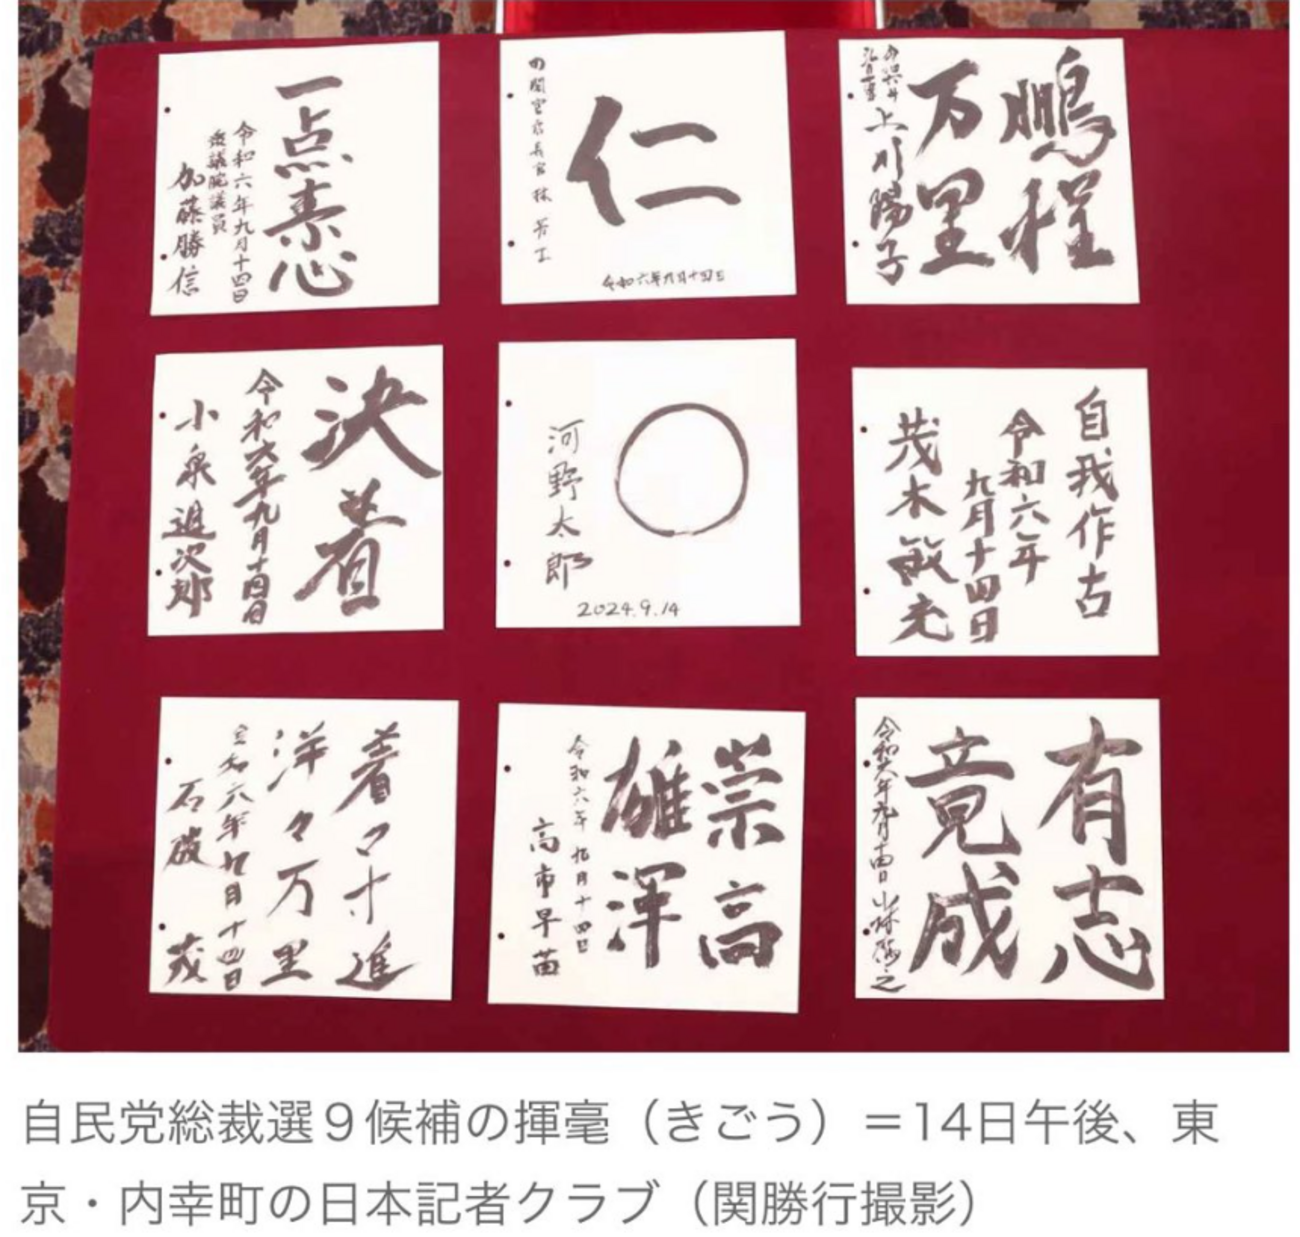 一点素心
令和六年九月十四日
衆議院議員
加藤勝信
仁
内閣官房長官 林芳正
令和六年九月十四日
鵬程
万里
上川陽子
決着
令和六年九月十四日
小泉進次郎
〇
河野太郎
2024.9.14
自我作古
令和六年
九月十四日
茂木敏充
着々寸進
洋々万里
令和六年九月十四日
石破 茂
崇高
雄渾
令和六年 九月十四日
高市早苗
有志
竟成
令和六年九月十四日 小林鷹之
自民党総裁選９候補の揮毫（きごう）＝14日午後、東
京・内幸町の日本記者クラブ（関勝行撮影）